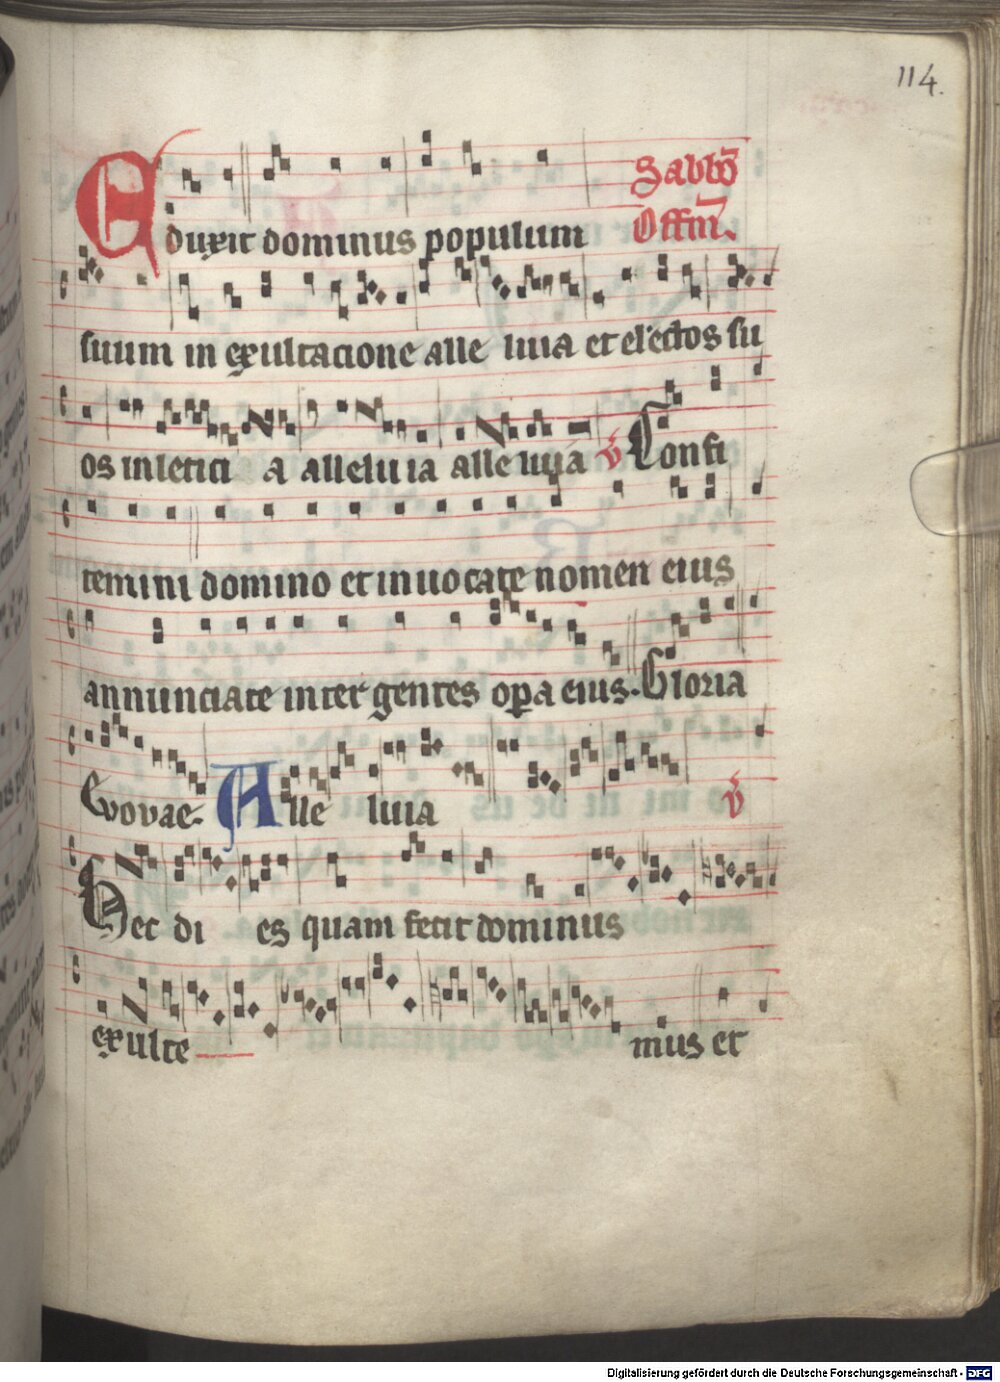 114.
Sabbō
Eduxit dominus populum Offm̄.
suum in exultacione alle luia et electos su
os inletici a alleluia alleluya v̄ Confi
temini domino et inuocate nomen eius
annunciate inter gentes opa eius. Gloria
Evovae. Alle luia v̄
Hec di es quam fecit dominus
exulte mus et
Digitalisierung gefördert durch die Deutsche Forschungsgemeinschaft - DFG